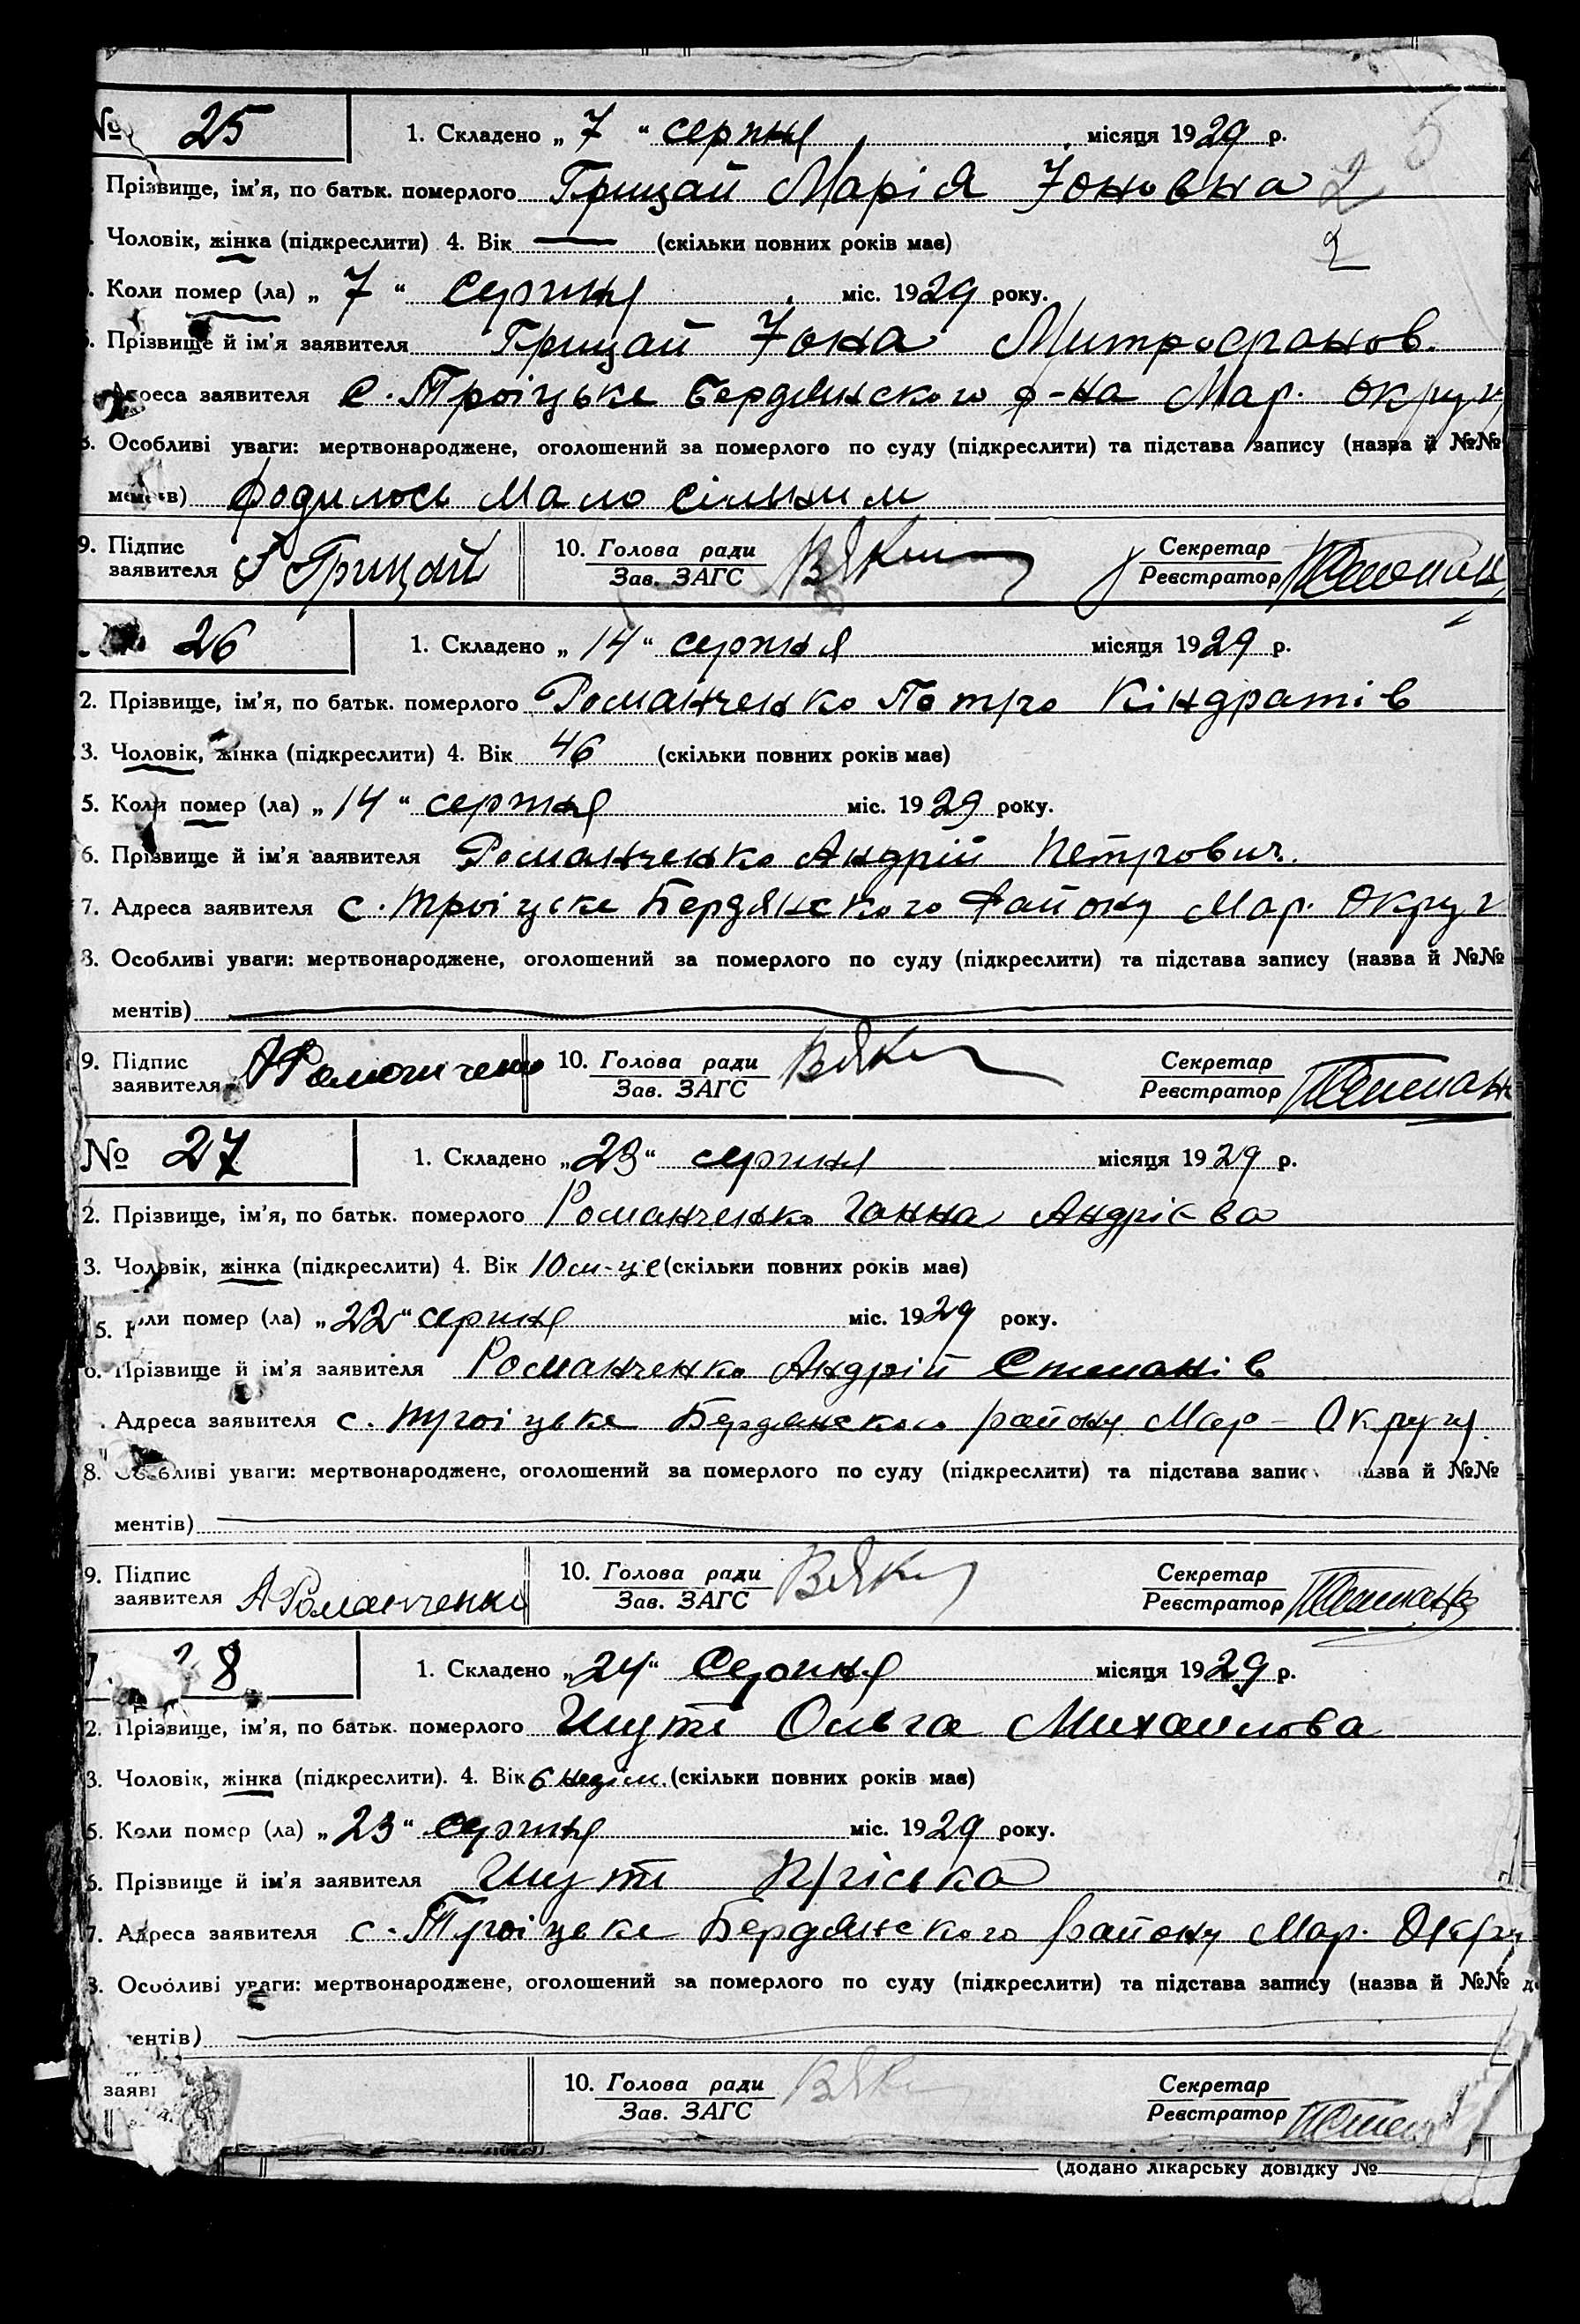 № 25 1. Складено „ 7 “ серпня місяця 1929 р.
Прізвище, ім’я, по батьк. померлого Грицай Марія Іоновна 2
Чоловік, жінка (підкреслити) 4. Вік — (скільки повних років має) 2
Коли помер (ла) „ 7 “ серпня міс. 1929 року.
Прізвище й ім’я заявителя Грицай Іона Митрофанов.
Адреса заявителя с. Троіцьке Бердянского р-на Мар. округ
8. Особливі уваги: мертвонароджене, оголошений за померлого по суду (підкреслити) та підстава запису (назва й №№
родилось мало сільним
9. Підпис заявителя Грицай 10. Голова ради Зав. ЗАГС Секретар Реєстратор
26 1. Складено „ 14 “ серпня місяця 1929 р.
2. Прізвище, ім’я, по батьк. померлого Романченко Петро Кіндратів
3. Чоловік, жінка (підкреслити) 4. Вік 46 (скільки повних років має)
5. Коли помер (ла) „ 14 “ серпня міс. 1929 року.
6. Прізвище й ім’я заявителя Романченко Андрій Петрович.
7. Адреса заявителя с. Троіцьке Бердянского району Мар. Округ
8. Особливі уваги: мертвонароджене, оголошений за померлого по суду (підкреслити) та підстава запису (назва й №№
ментів)
9. Підпис заявителя А Романченко 10. Голова ради Зав. ЗАГС Секретар Реєстратор
№ 27 1. Складено „ 23 “ серпня місяця 1929 р.
2. Прізвище, ім’я, по батьк. померлого Романченко Ганна Андрієва
3. Чоловік, жінка (підкреслити) 4. Вік 10 м-це (скільки повних років має)
5. Коли помер (ла) „ 22 “ серпня міс. 1929 року.
6. Прізвище й ім’я заявителя Романченко Андрій Степанів
Адреса заявителя с. Троіцьке Бердянского району Мар – Округи.
8. Особливі уваги: мертвонароджене, оголошений за померлого по суду (підкреслити) та підстава запис назва й №№
ментів)
9. Підпис заявителя А Романченко 10. Голова ради Зав. ЗАГС Секретар Реєстратор
28 1. Складено „ 24 “ Серпня місяця 1929 р.
2. Прізвище, ім’я, по батьк. померлого Шуть Ольга Михайлова
3. Чоловік, жінка (підкреслити). 4. Вік 6 неділ. (скільки повних років має)
5. Коли помер (ла) „ 23 “ серпня міс. 1929 року.
6. Прізвище й ім’я заявителя Шуть Пріська
7. Адреса заявителя с. Троіцьке Бердянского району Мар. Округ
8. Особливі уваги: мертвонароджене, оголошений за померлого по суду (підкреслити) та підстава запису (назва й №№
ментів)
заяві 10. Голова ради Зав. ЗАГС Секретар Реєстратор
(додано лікарську довідку №